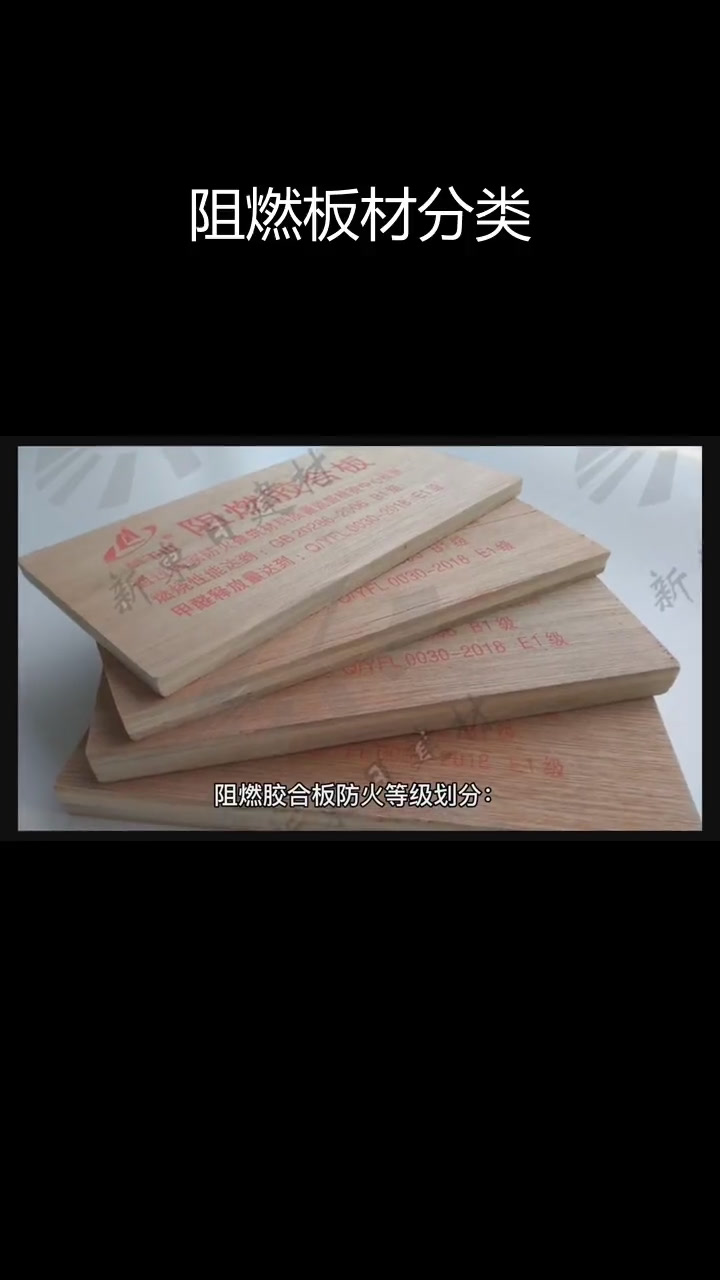 阻燃板材分类
阻燃胶合板
燃烧性能达到：GB 20286-2006 B1级
甲醛释放量达到：Q/YFL 0030-2018 E1级
B1级
Q/YFL 0030-2018 E1级
B1级
Q/YFL 0030-2018 E1级
2018 E1级
新东日建材
新
阻燃胶合板防火等级划分：